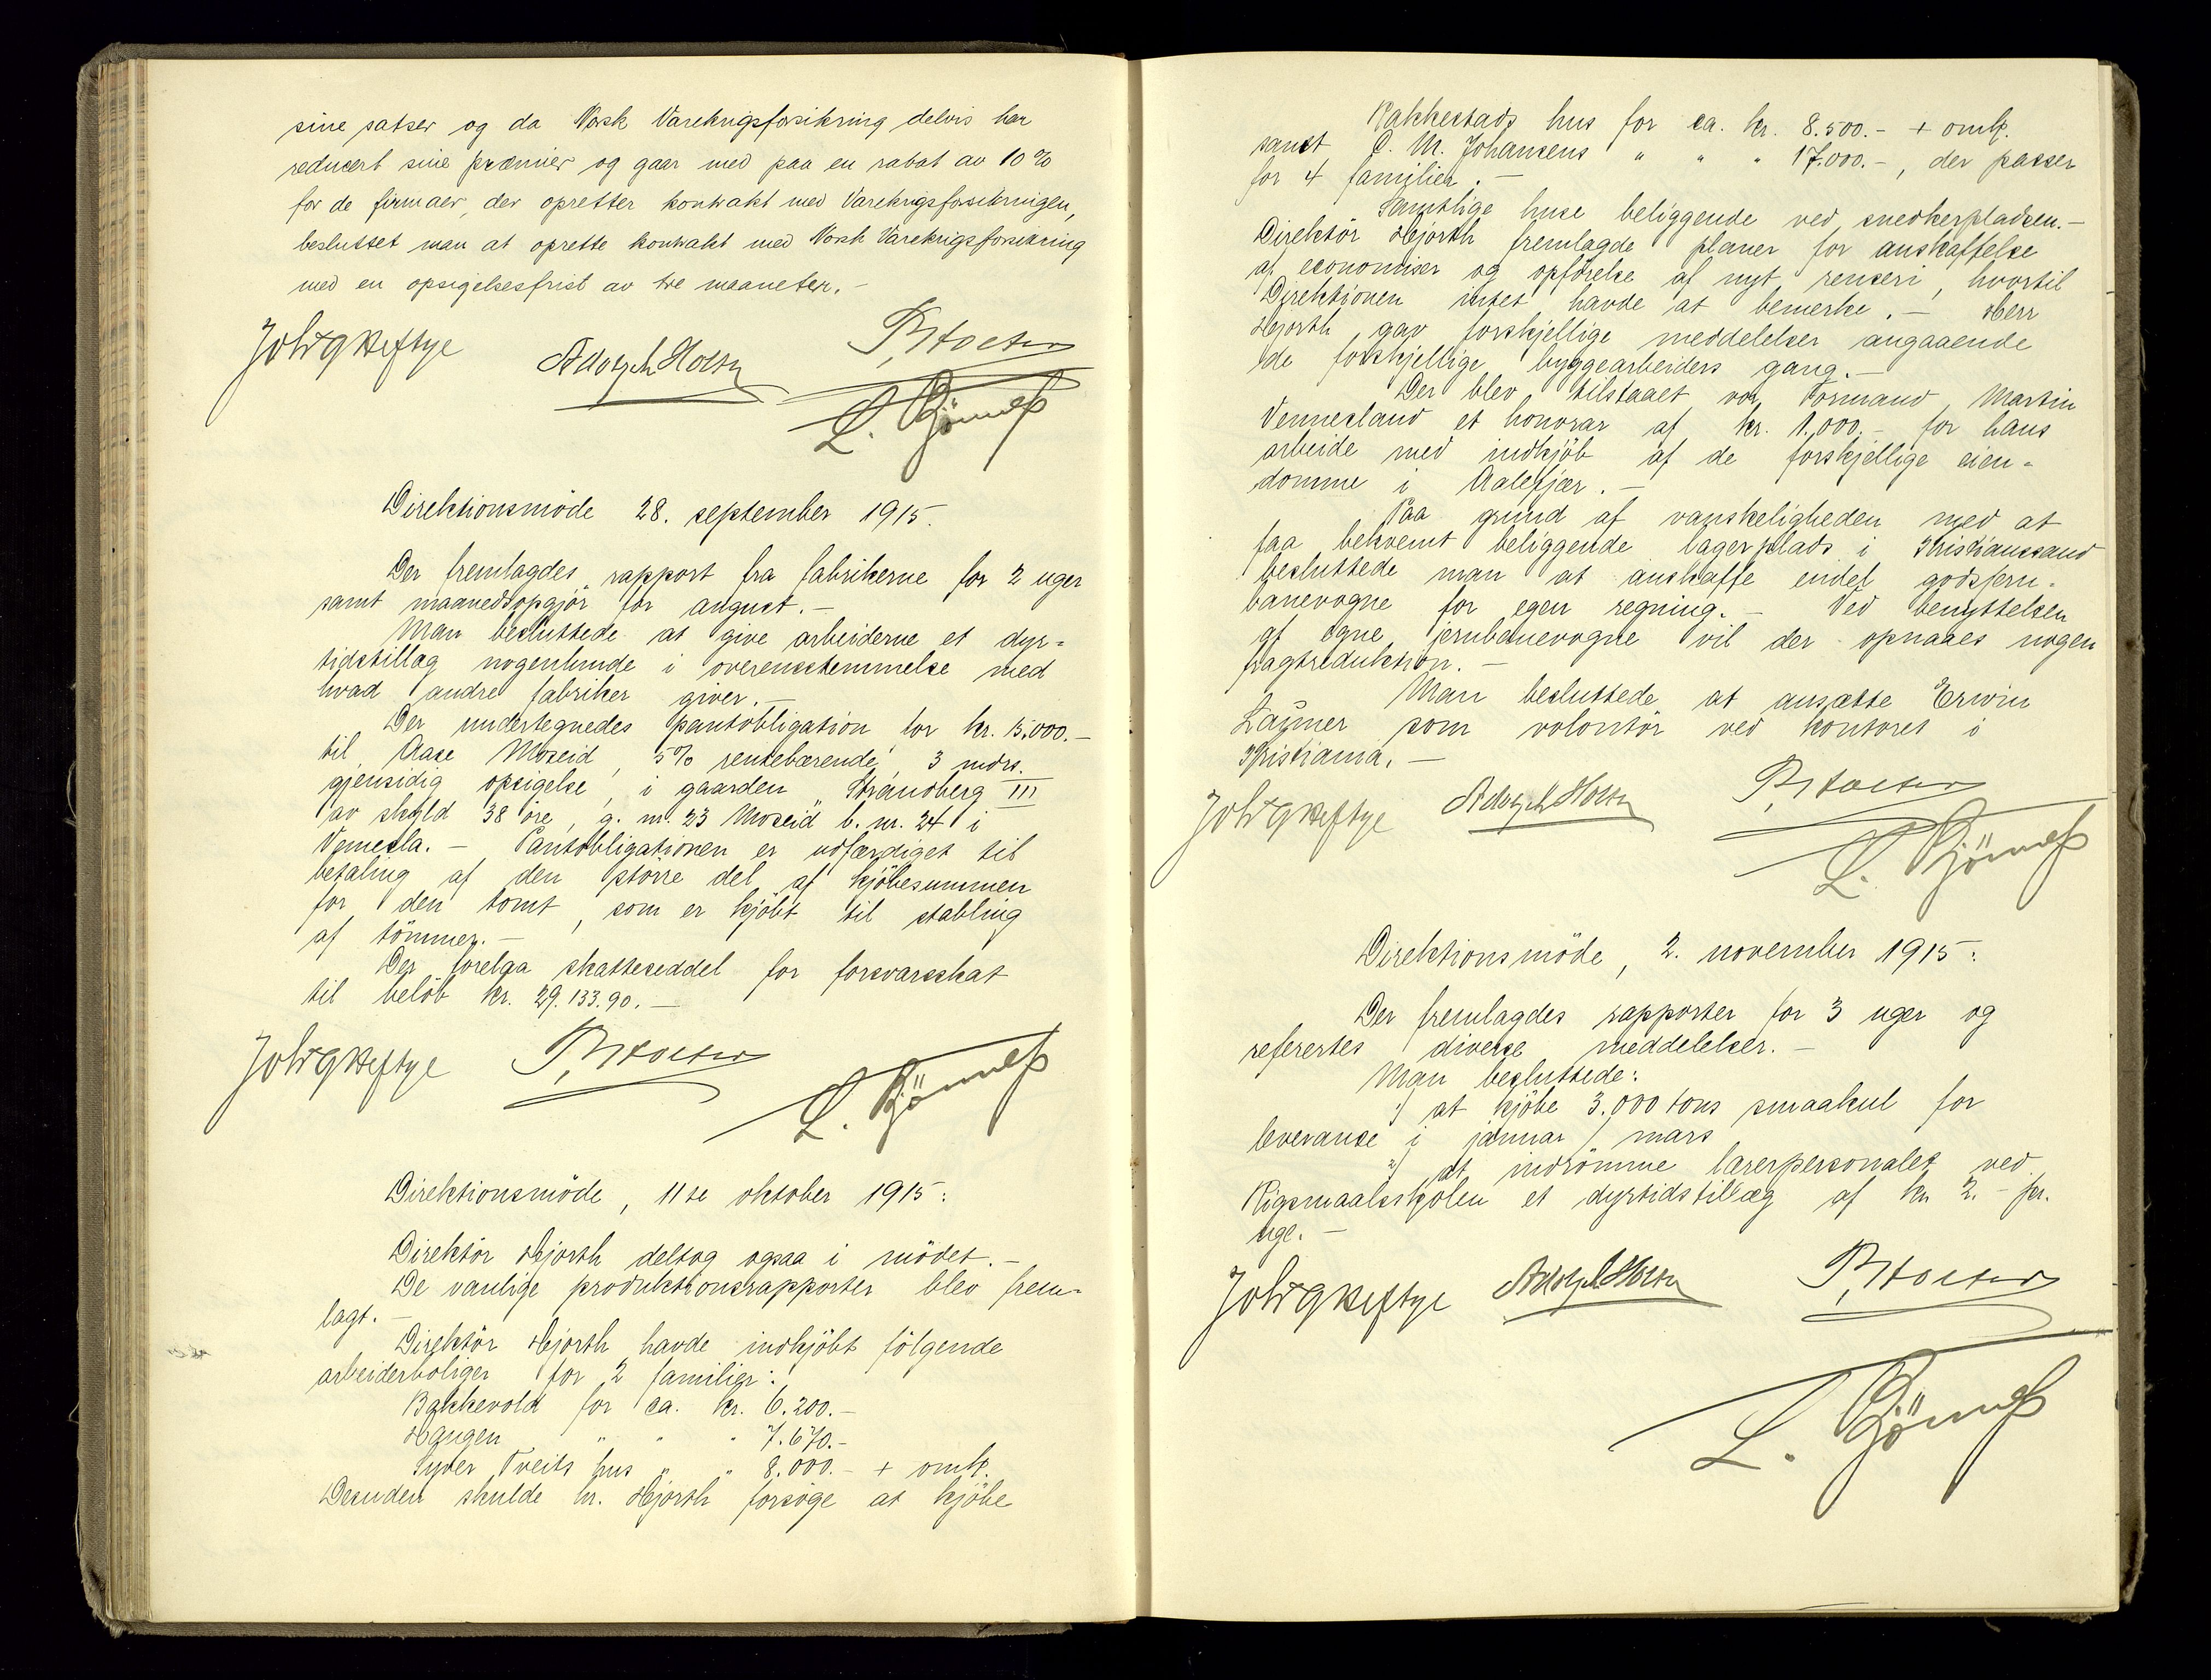 sine satser og da Norsk Varekrigsforsikring delvis har
reducert sine præmier og gaar med paa en rabat av 10%
for de firmaer, der opretter kontrakt med Varekrigsforsikringen,
besluttet man at oprette kontrakt med Norsk Varekrigsforsikring
med en opsigelsesfrist av tre maaneter.-
Joh Heftye
Adolph Holth
L.
Direktionsmöde 28. september 1915.
Der fremlagdes rapport fra fabrikerne for 2 uger
samt maanedsopgjör for august.-
Man besluttede at give arbeiderne et dyr-
tidstillæg nogenlunde i overensstemmelse med
hvad andre fabriker giver.-
Der undertegnedes pantobligation for kr. 5.000.-
til Aase Moseid, 5% rentebærende, 3 mdrs.
gjensidig opsigelse, i gaarden Strandberg III
av skyld 38 öre, g. nr. 23 Moseid b. nr. 24 i
Vennesla.- Pantobligationen er udfærdiget til
betaling af den större del af kjöbesummen
for den tomt, som er kjöbt til stabling
af tömmer.-
Der forelaa skatteseddel for forsvarsskat
til belöb kr. 29.133.90.-
Joh Heftye
L.
Direktionsmöde, 11te oktober 1915:
Direktör Hjorth deltog ogsaa i mödet.-
De vanlige produktionsrapporter blev frem-
lagt.-
Direktör Hjorth havde indkjöbt fölgende
arbeiderboliger for 2 familier:
Bakkevold for ca. kr. 6.200.-
Haugen " " " 7.670.-
Syver Tveits hus " " 8.000.- + omk.
Desuden skulde hr. Hjorth forsöge at kjöbe
Rakkestads hus for ca. kr. 8.500.- + omk.
samt O. M. Johansens " " " 17.000.-, der passer
for 4 familier.-
Samtlige huse beliggende ved snedkerpladsen.-
Direktör Hjorth fremlagde planer for anskaffelse
af economiser og opförelse af nyt renseri, hvortil
Direktionen intet havde at bemerke.- Herr
Hjorth gav forskjellige meddelelser angaaende
de forskjellige byggearbeiders gang.-
Der blev tilstaaet vor Formand Martin
Vennesland et honorar af kr. 1.000.- for hans
arbeide med indkjöb af de forskjellige eien-
domme i Aalefjær.-
Paa grund af vanskeligheden med at
faa bekvemt beliggende lagerplads i Kristianssand
besluttede man at anskaffe endel godsjern-
banevogne for egen regning.- Ved benyttelsen
af egne jernbanevogne vil der opnaaes nogen
fragtreduktion.-
Man besluttede at ansætte Erwin
Laymer som volontör ved kontoret i
Kristiania.-
Joh Heftye
Adolph Holth
L.
Direktionsmöde, 2. november 1915:
Der fremlagdes rapporter for 3 uger og
referertes diverse meddelelser.-
Man besluttede:
1) at kjöbe 3.000 tons smaakul for
leveranse i januar/mars
2) at indrömme lærerpersonalet ved
Rigsmaalsskolen et dyrtidstillæg af kr. 2.- pr.
uge.-
Joh Heftye
Adolph Holth
L.